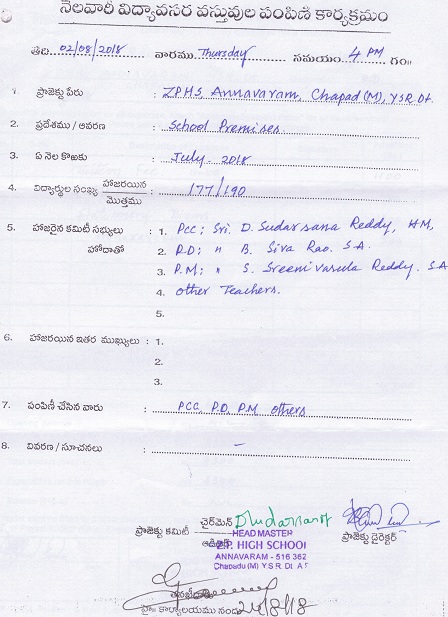 నెలవారీ విద్యావసర వస్తువుల పంపిణీ కార్యక్రమం
తేది 02/08/2018 వారము Thursday సమయం 4 PM గం॥
1 ప్రాజెక్టు పేరు : ZPHS, Annavaram, Chapad (M), YSR Dt.
2. ప్రదేశము / ఆవరణ : School Premises.
3. ఏ నెల కొఱకు : July. 2018
4. విద్యార్థుల సంఖ్య హాజరయిన / మొత్తము : 177/190
5. హాజరైన కమిటీ సభ్యులు : 1. PCC; Sri. D. Sudarsana Reddy, HM,
హోదాతో 2. P.D; " B. Siva Rao. S.A.
3. P.M; " S. Sreenivasula Reddy. S.A
4. other Teachers.
5.
6. హాజరయిన ఇతర ముఖ్యులు : 1.
2.
3.
7. పంపిణీ చేసిన వారు : PCC, P.D, P.M others
8. వివరణ / సూచనలు : –
ప్రాజెక్టు కమిటీ చైర్మెన్ ప్రాజెక్టు డైరెక్టర్
HEAD MASTER
Z.P. HIGH SCHOOL
ANNAVARAM - 516 362
Chapadu (M) Y S R. Dt. A P